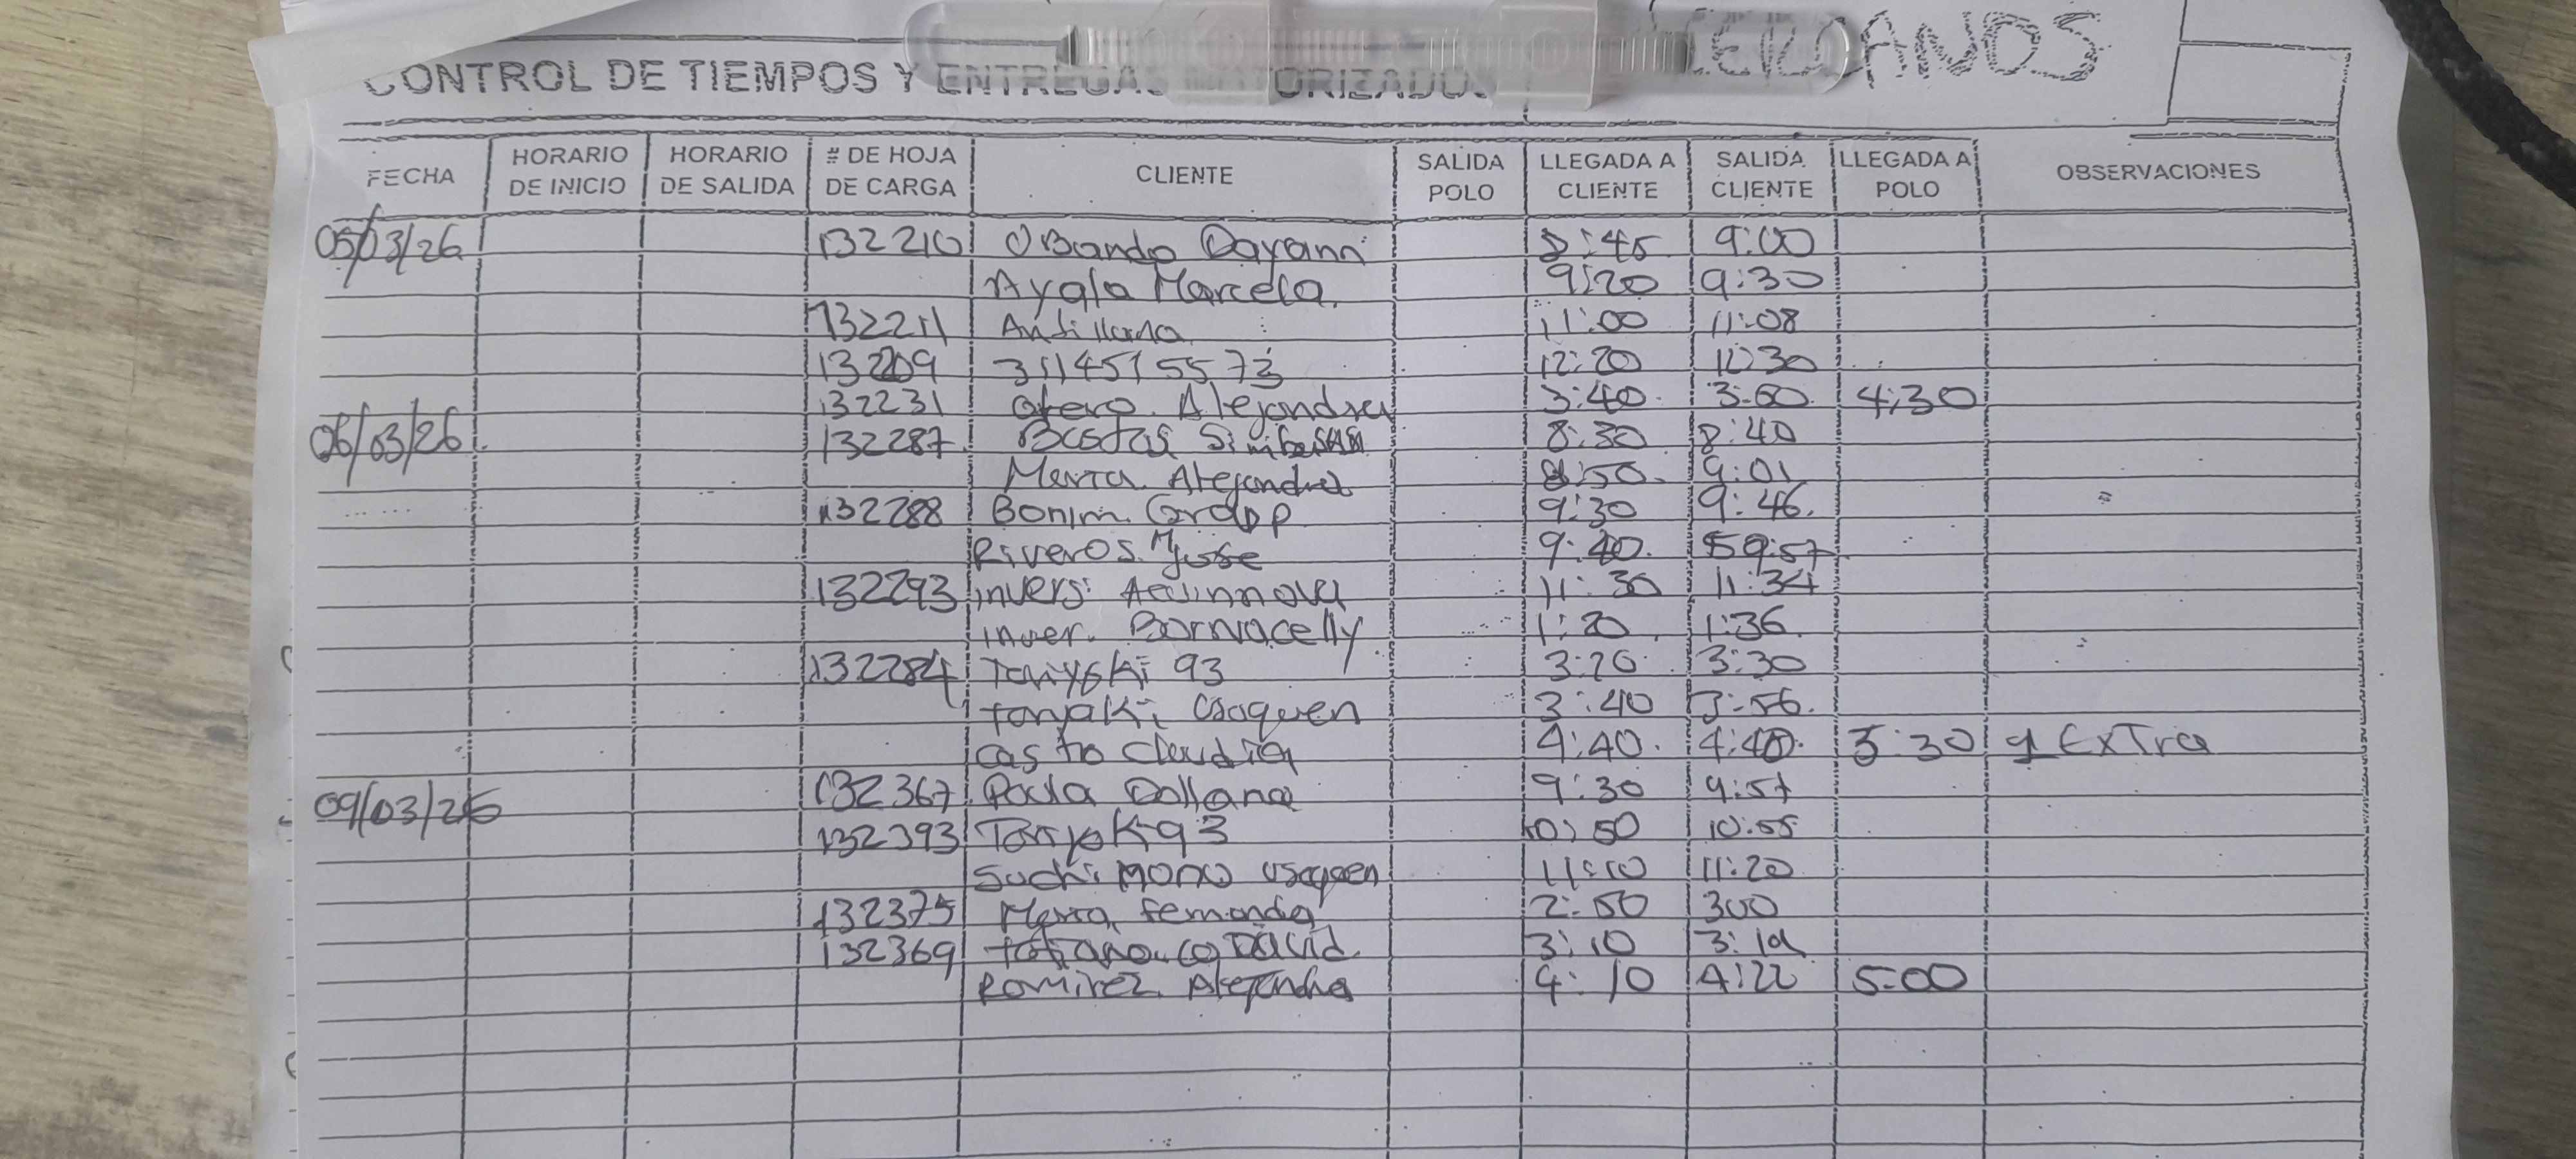 CONTROL DE TIEMPOS Y ENTREGAS MOTORIZADOS
FECHA HORARIO DE INICIO HORARIO DE SALIDA # DE HOJA DE CARGA CLIENTE SALIDA POLO LLEGADA A CLIENTE SALIDA CLIENTE LLEGADA A POLO OBSERVACIONES
05/03/26 132210 Obando Dayann 8:45 9:00
Ayala Marcela. 9:20 9:30
132211 11:00 11:08
132209 3114515573 12:20 12:30
132231 otero. Alejandra 3:40. 3:50. 4:30
06/03/26. 132287. 8:30 8:40
Alejandra 8:50. 9:01
132288 Bonim. Group 9:30 9:46.
Riveros. 9:40. 9:57
132293 invers: 11:30 11:34
inver. 1:20 1:36.
132284 93 3:20 3:30
3:40 3:56.
castro Claudia 4:40. 4:48. 5:30 1 ExTra
09/03/26 132367 Paula 9:30 9:57
132393 93 10:50 10:55
Suchi Mono usaquen 11:10 11:20
132375 fernanda 2:50 300
132369 David. 3:10
Ramirez. Alejandra 4:10 4:22 5:00